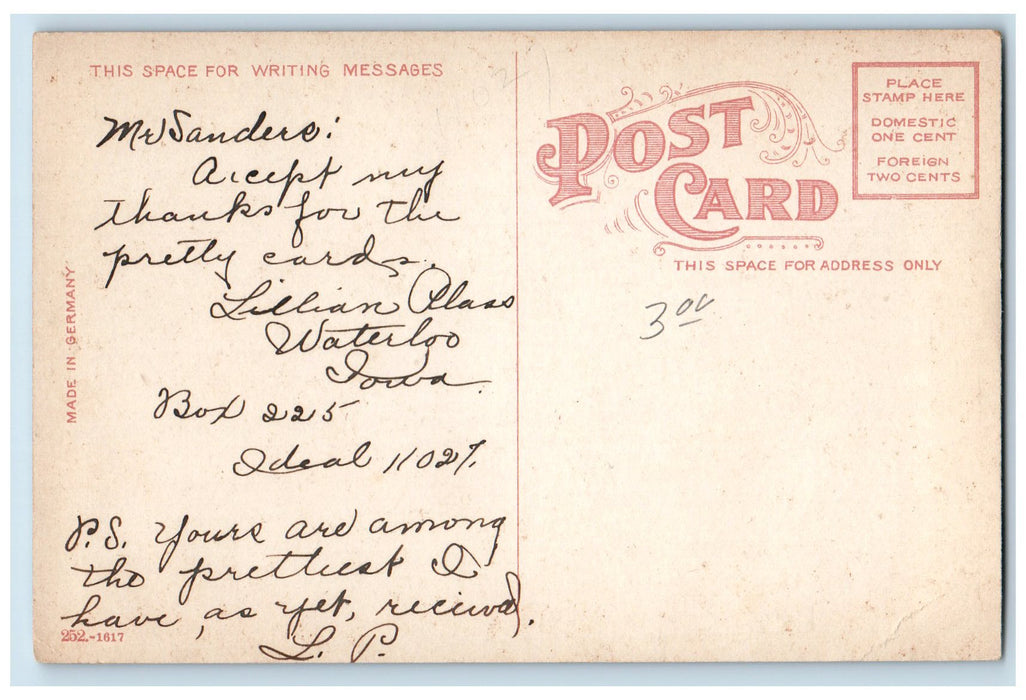 THIS SPACE FOR WRITING MESSAGES
Mr Sanders:
Accept my
thanks for the
pretty cards.
Lillian Plass
Waterloo
Iowa
Box 225
Ideal 11027.
P.S. Yours are among
the prettiest I
have, as yet, received.
L. P.
252.-1617
MADE IN GERMANY
POST
CARD
THIS SPACE FOR ADDRESS ONLY
PLACE
STAMP HERE
DOMESTIC
ONE CENT
FOREIGN
TWO CENTS
3.00